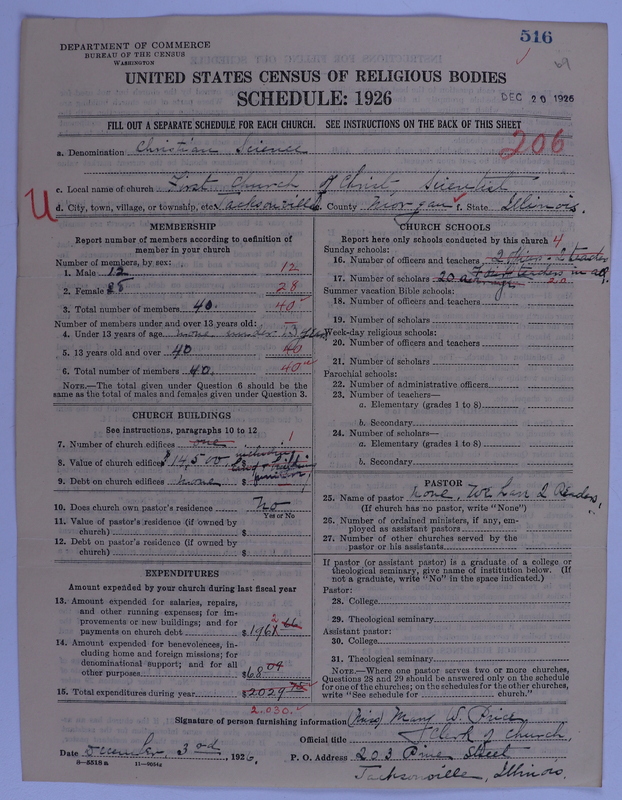 516
DEPARTMENT OF COMMERCE
BUREAU OF THE CENSUS
WASHINGTON
UNITED STATES CENSUS OF RELIGIOUS BODIES
SCHEDULE: 1926
DEC 20 1926
FILL OUT A SEPARATE SCHEDULE FOR EACH CHURCH. SEE INSTRUCTIONS ON THE BACK OF THIS SHEET
206
a. Denomination Christian Science
c. Local name of church First Church of Christ Scientist
U
d. City, town, village, or township, etc. Jacksonville County Morgan f. State Illinois.
MEMBERSHIP
Report number of members according to definition of
member in your church
Number of members, by sex:
1. Male 12 12
2. Female 28 28
3. Total number of members 40. 40
Number of members under and over 13 years old:
4. Under 13 years of age none under 13 years
5. 13 years old and over 40 40
6. Total number of members 40. 40
NOTE.—The total given under Question 6 should be the
same as the total of males and females given under Question 3.
CHURCH BUILDINGS
See instructions, paragraphs 10 to 12
7. Number of church edifices one 1
8. Value of church edifices $14,500.
9. Debt on church edifices none $
10. Does church own pastor's residence No
Yes or No
11. Value of pastor's residence (if owned by
church) $
12. Debt on pastor's residence (if owned by
church) $
EXPENDITURES
Amount expended by your church during last fiscal year
13. Amount expended for salaries, repairs,
and other running expenses; for im-
provements or new buildings; and for
payments on church debt $1961 66 2
14. Amount expended for benevolences, in-
cluding home and foreign missions; for
denominational support; and for all
other purposes $68 09
15. Total expenditures during year $2029 75
2.030.
CHURCH SCHOOLS
Report here only schools conducted by this church 4
Sunday schools:
16. Number of officers and teachers 2
17. Number of scholars 20 20
Summer vacation Bible schools:
18. Number of officers and teachers
19. Number of scholars
Week-day religious schools:
20. Number of officers and teachers
21. Number of scholars
Parochial schools:
22. Number of administrative officers
23. Number of teachers—
a. Elementary (grades 1 to 8)
b. Secondary
24. Number of scholars—
a. Elementary (grades 1 to 8)
b. Secondary
PASTOR
25. Name of pastor None, We have 2 Readers,
(If church has no pastor, write "None")
26. Number of ordained ministers, if any, em-
ployed as assistant pastors
27. Number of other churches served by the
pastor or his assistants
If pastor (or assistant pastor) is a graduate of a college or
theological seminary, give name of institution below. (If
not a graduate, write "No" in the space indicated.)
Pastor:
28. College
29. Theological seminary
Assistant pastor:
30. College
31. Theological seminary
NOTE.—Where one pastor serves two or more churches,
Questions 28 and 29 should be answered only on the schedule
for one of the churches; on the schedules for the other churches,
write "See schedule for church."
Signature of person furnishing information (Miss) Mary W. Price
Official title Clerk of Church,
Date December 3rd, 1926. P. O. Address 203 Pine Street
8—5518a 11—9054a Jacksonville, Illinois.